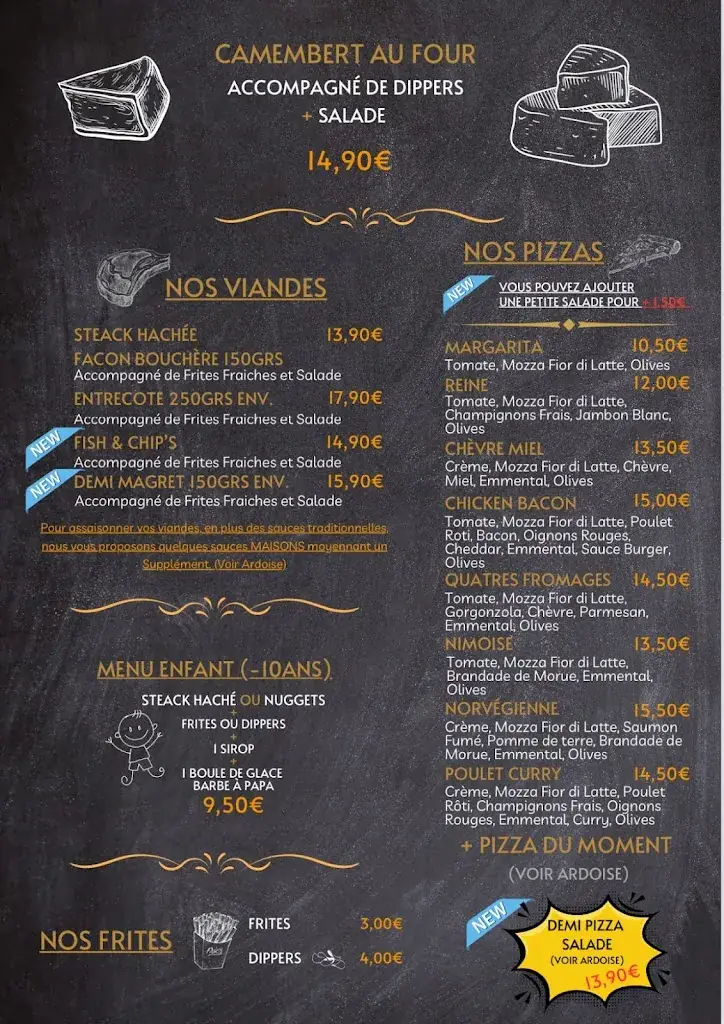 CAMEMBERT AU FOUR
ACCOMPAGNÉ DE DIPPERS
+ SALADE
14,90€
NOS VIANDES
STEACK HACHÉE 13,90€
FACON BOUCHÈRE 150GRS
Accompagné de Frites Fraiches et Salade
ENTRECOTE 250GRS ENV. 17,90€
Accompagné de Frites Fraiches et Salade
NEW
FISH & CHIP'S 14,90€
Accompagné de Frites Fraiches et Salade
NEW
DEMI MAGRET 150GRS ENV. 15,90€
Accompagné de Frites Fraiches et Salade
Pour assaisonner vos viandes, en plus des sauces traditionnelles,
nous vous proposons quelques sauces MAISONS moyennant un
Supplément. (Voir Ardoise)
MENU ENFANT (-10ANS)
STEACK HACHÉ OU NUGGETS
+
FRITES OU DIPPERS
+
1 SIROP
+
1 BOULE DE GLACE
BARBE À PAPA
9,50€
NOS FRITES
FRITES 3,00€
DIPPERS 4,00€
NOS PIZZAS
NEW
VOUS POUVEZ AJOUTER
UNE PETITE SALADE POUR + 1,50€
MARGARITA 10,50€
Tomate, Mozza Fior di Latte, Olives
REINE 12,00€
Tomate, Mozza Fior di Latte,
Champignons Frais, Jambon Blanc,
Olives
CHÈVRE MIEL 13,50€
Crème, Mozza Fior di Latte, Chèvre,
Miel, Emmental, Olives
CHICKEN BACON 15,00€
Tomate, Mozza Fior di Latte, Poulet
Roti, Bacon, Oignons Rouges,
Cheddar, Emmental, Sauce Burger,
Olives
QUATRES FROMAGES 14,50€
Tomate, Mozza Fior di Latte,
Gorgonzola, Chèvre, Parmesan,
Emmental, Olives
NIMOISE 13,50€
Tomate, Mozza Fior di Latte,
Brandade de Morue, Emmental,
Olives
NORVÉGIENNE 15,50€
Crème, Mozza Fior di Latte, Saumon
Fumé, Pomme de terre, Brandade de
Morue, Emmental, Olives
POULET CURRY 14,50€
Crème, Mozza Fior di Latte, Poulet
Rôti, Champignons Frais, Oignons
Rouges, Emmental, Curry, Olives
+ PIZZA DU MOMENT
(VOIR ARDOISE)
NEW
DEMI PIZZA
SALADE
(VOIR ARDOISE)
13,90€